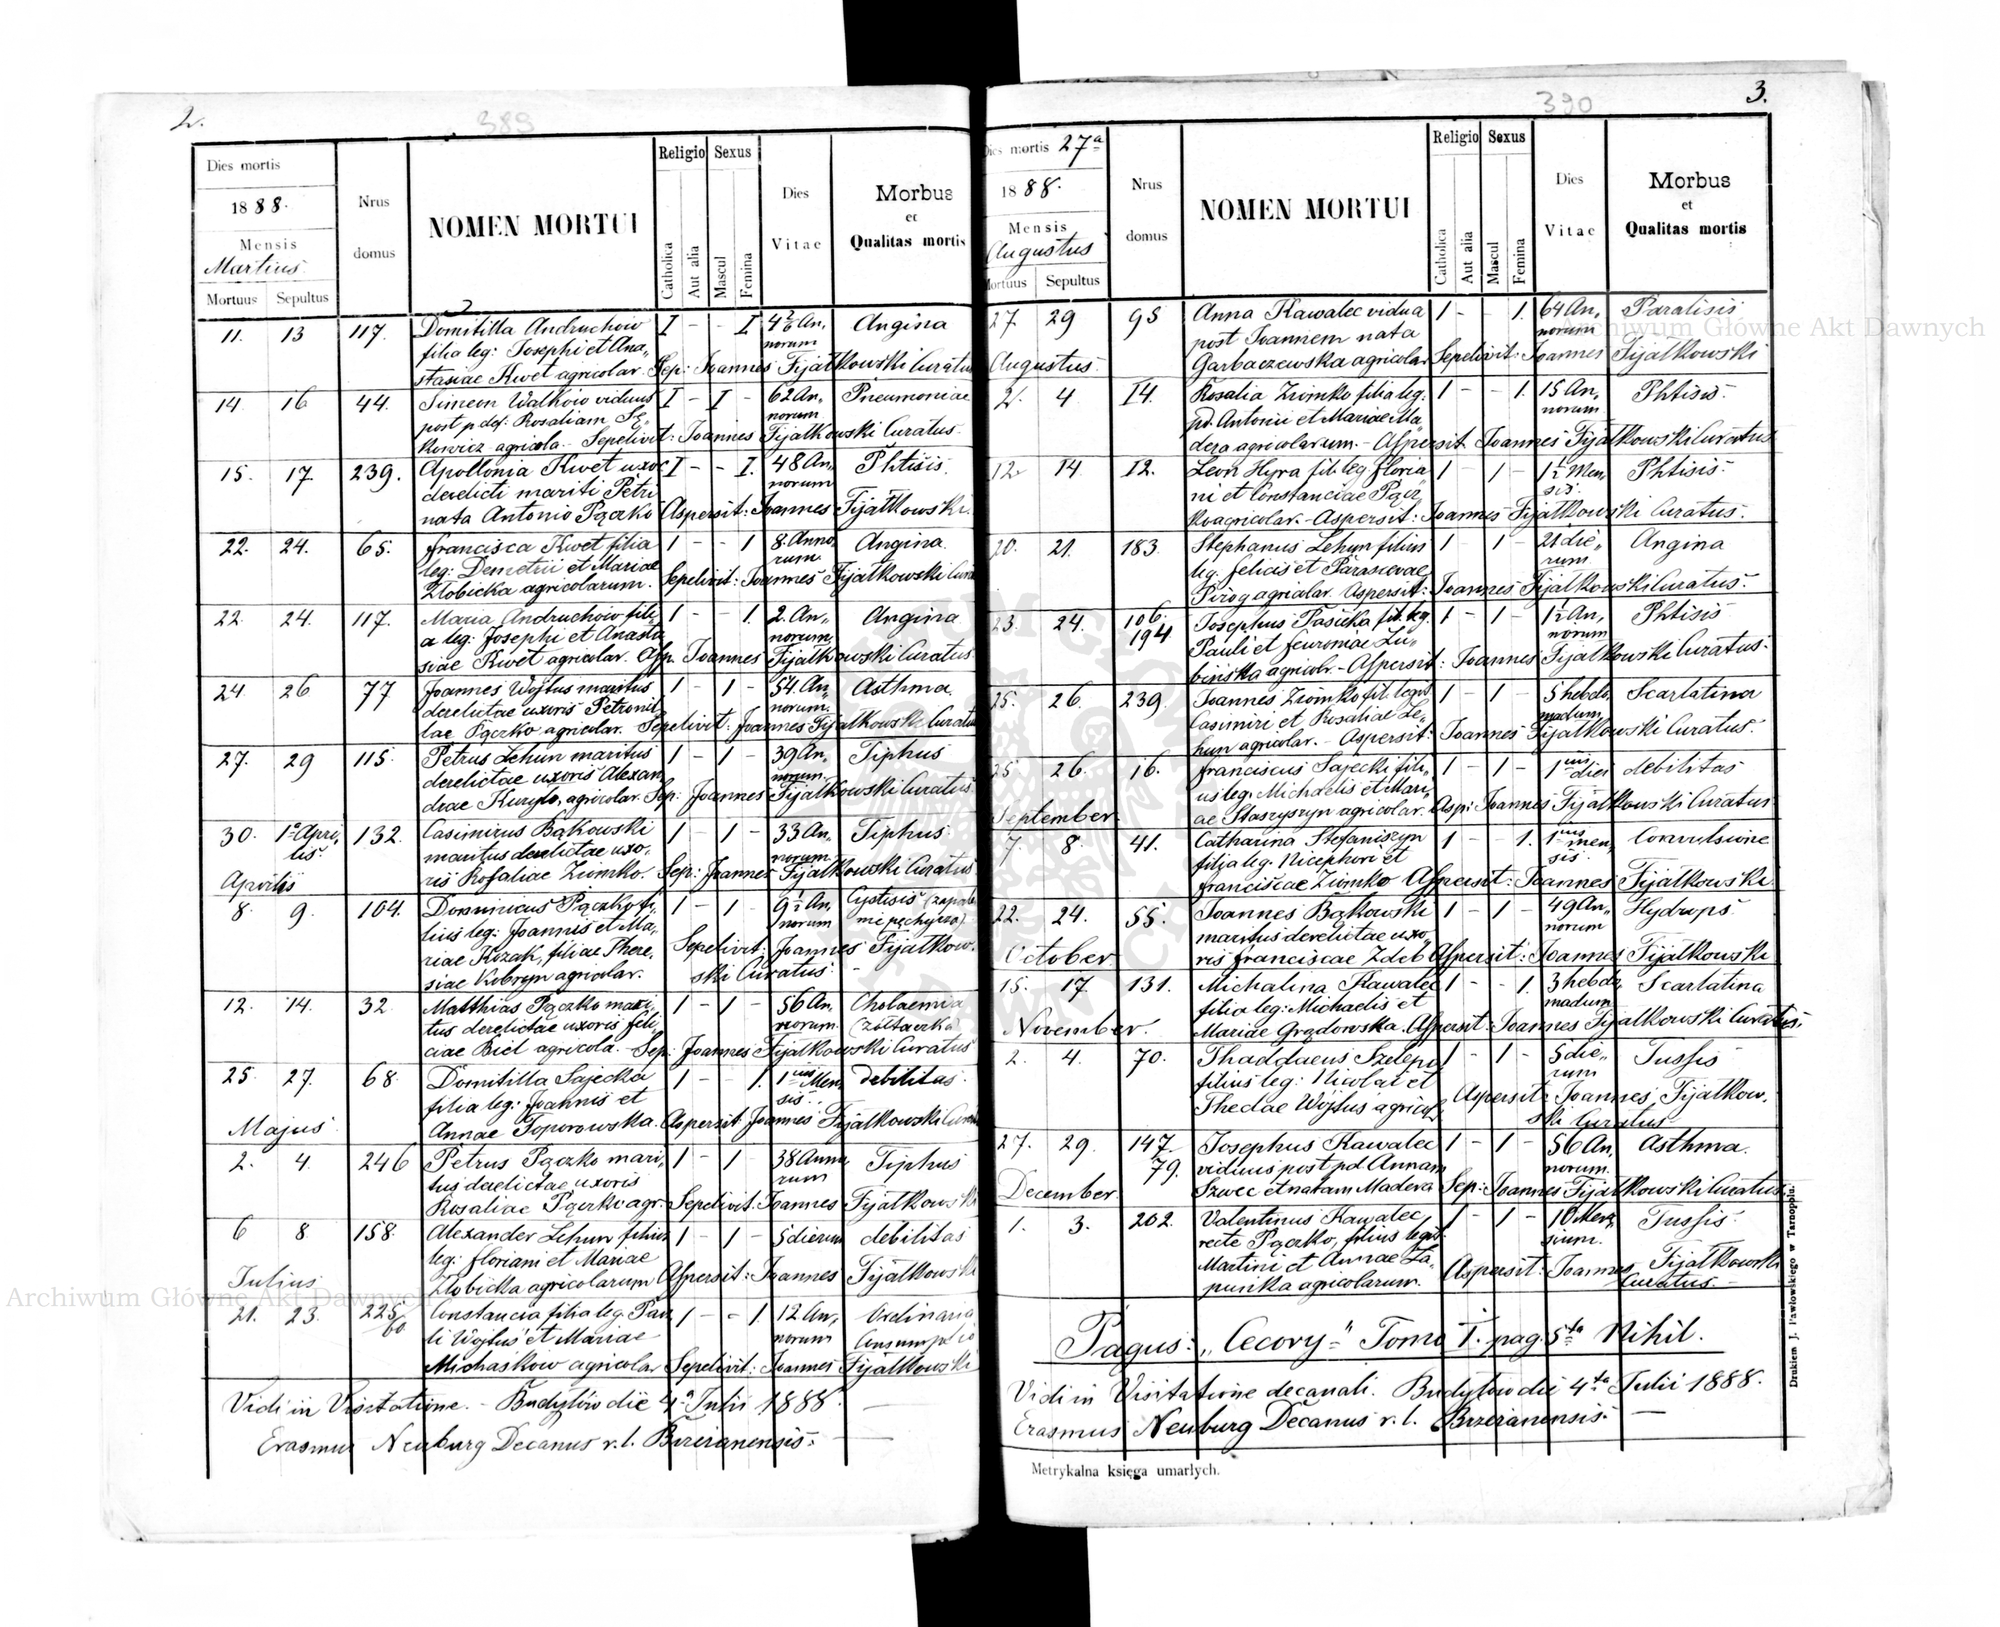 2.
389
Dies mortis
1888.
Mensis
Martius.
Mortuus Sepultus
Nrus
domus
NOMEN MORTUI
Religio Sexus
Catholica
Aut alia
Mascul
Femina
Dies
Vitae
Morbus
et
Qualitas mortis
11. 13 117. Domitilla Andruchow I - - I. An, Angina
norum
filia leg: Josephi et Ana,,
stasiae Kwet agricolar. Sep: Joannes Fijałkowski Curatus
14. 16 44. Simeon Walkow viduus I - I - 62 An,, Pneumoniae
norum
post p def. Rosaliam
agricola. - Sepelivit: Joannes Fijałkowski Curatus.
15. 17. 239. Apollonia Kwet uxor I - - I. 48 An,, Phtisis.
norum
derelicti mariti Petri
nata Antonio Pączko Aspersit: Joannes Fijałkowski.
22. 24. 65. Francisca Kwet filia 1 - - 1 8. Anno, Angina.
rum.
leg: Demetrii et Mariae
Złobicka agricolarum. Sepelivit: Joannes Fijałkowski
22. 24. 117. Maria Andruchow fili- 1 - - 1. 2. An,, Angina
norum
a leg: Josephi et Anasta
siae Kwet agricolar. Asp. Joannes Fijałkowski Curatus
24 26 77 Joannes Wojtus maritus 1 - 1 - 54. An,, Asthma.
norum.
derelictae uxoris Petronil
lae Pączko agricolar. Sepelivit: Joannes Fijałkowski Curatus
27. 29 115. Petrus Lehun maritus 1 - 1 - 39 An,, Tiphus
norum.
derelictae uxoris Alexan
drae Kuryło, agricolar. Sep: Joannes Fijałkowski Curatus
30. 1ª Apri, 132. Casimirus Bąkowski 1 - 1 - 33 An,, Tiphus.
lis. norum.
maritus derelictae uxo,
ris Rosaliae Ziomko. Sep: Joannes Fijałkowski Curatus
Aprilis
8. 9. 104. Dominicus Pączko fi, 1 - 1 - 9½ An, Cystisis (zapale
norum nie pęcherza)
lius leg: Joannis et Ma,
riae Kozak, filiae There, Sepelivit: Joannes Fijałkow.
siae Kobryn agricolar. ski Curatus.
12. 14. 32. Matthias Pączko mari, 1 - 1 - 56 An, Cholaemia
norum. (żółtaczka)
tus derelictae uxoris Feli,
ciae Biel agricola. Sep: Joannes Fijałkowski Curatus
25. 27. 68. Domitilla Sajecka 1 - - 1. 1ius Men, debilitas.
sis.
filia leg: Joannis et
Annae Toporowska. Aspersit Joannes Fijałkowski
Majus
2. 4. 246 Petrus Pączko mari, 1 - 1 38 Anno Tiphus
rum
tus derelictae uxoris
Rosaliae Pączko agr. Sepelivit: Joannes Fijałkowski
6 8 158. Alexander Lehun filius 1 - 1 - 5 dierum debilitas
leg: Floriani et Mariae
Złobicka agricolarum Aspersit: Joannes Fijałkowski
Julius
21. 23. 225/60 Constancia filia leg. Pau 1 - - 1. 12 An, Ordinaria
norum
li Wojtus et Mariae
Michaśkow agricolar Sepelivit: Joannes Fijałkowski
Vidi in Visitatione. - Budylów die 4ª Julii 1888.
Erasmus Neuburg Decanus r. l. Brzeżanensis.
3.
390
Dies mortis 27ª
1888.
Mensis
Augustus
Mortuus Sepultus
Nrus
domus
NOMEN MORTUI
Religio Sexus
Catholica
Aut alia
Mascul
Femina
Dies
Vitae
Morbus
et
Qualitas mortis
27. 29 95 Anna Kawalec vidua 1 - - 1. 64 An, Paralisis
norum
post Joannem nata
Garbaczewska agricolar Sepelivit: Joannes Fijałkowski
Augustus.
2. 4 14. Rosalia Ziomko filia leg. 1 - - 1. 15 An, Phtisis.
norum
pd. Antonii et Mariae Ma,
dera agricolarum. - Aspersit Joannes Fijałkowski Curatus
12 14 12. Leon Hyra fil. leg Floria 1 1 - 1½ Men, Phtisis.
sis.
ni et Constanciae Pącz,
ko agricolar. - Aspersit: Joannes Fijałkowski Curatus.
20. 21. 183. Stephanus Lehun filius 1 - 1 21 die,, Angina
rum.
leg. Felicis et Parascevae
Pirog agricolar. Aspersit: Joannes Fijałkowski Curatus.
23. 24. 106. 194 Josephus Pasieka fil. leg. 1 - 1 - 1½ An, Phtisis
norum
Pauli et Feuroniae Lu,
bińska agricolr. - Aspersit: Joannes Fijałkowski Curatus.
25. 26. 239. Joannes Ziomko fil. legit 1 - 1 - 5 hebdo, Scarlatina
madum
Casimiri et Rosaliae Le,
hun agricolar. - Aspersit: Joannes Fijałkowski Curatus.
25 26. 16. Franciscus Sajecki fili, 1 - 1 - 1ius diei debilitas
us leg: Michaelis et Mari,
ae Staszyszyn agricolar. Asp: Joannes Fijałkowski Curatus
September
7 8. 41. Catharina Stefaniszyn 1 - - 1. 1ius men, Convulsione
sis.
filia leg. Nicephori et
Franciscae Ziomko Aspersit: Joannes Fijałkowski.
22. 24. 55. Joannes Bąkowski 1 - 1 - 49 An,, Hydrops.
norum
maritus derelictae uxo,
ris Franciscae Zdeb Aspersit: Joannes Fijałkowski
October
15. 17 131. Michalina Kawalec 1 - - 1. 3 hebdo, Scarlatina
madum
filia leg: Michaelis et
Mariae Grądowska. Aspersit: Joannes Fijałkowski Curatus.
November.
2. 4. 70. Thaddaeus Szeleps 1 - 1 - 5 die,, Tussis
rum
filius leg: Nicolai et
Theclae Wojtus agricol. Aspersit: Joannes Fijałkow.
ski Curatus
27. 29. 147. 79. Josephus Kawalec 1 - 1 - 56 An, Asthma.
norum.
viduus post pd Annam
Szwec et natam Madera Sep: Joannes Fijałkowski Curatus
December.
1. 3. 202. Valentinus Kawalec, 1 - 1 - 10 Men, Tussis.
sium.
recte Pączko, filius legit.
Martini et Annae Ła, Aspersit: Joannes Fijałkowski
pusińka agricolarum. Curatus.
Pagus: „Cecory" Tomo I. pag. 5ta Nihil.
Vidi in Visitatione decanali. Budylow die 4ta Julii 1888.
Erasmus Neuburg Decanus r. l. Brzeżanensis.
Metrykalna księga umarłych.
Drukiem J. Pawłowskiego w Tarnopolu.
Archiwum Główne Akt Dawnych
Archiwum Główne Akt Dawnych